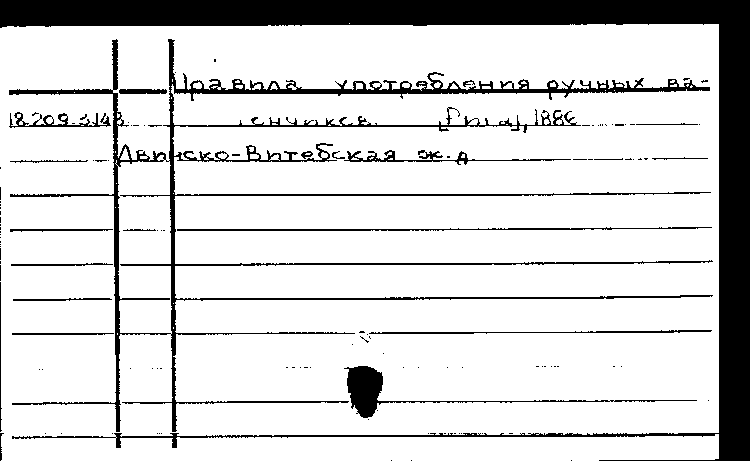 Правила употребления ручных ва-
18.209.3.148 генчиков. [Рига], 1886
Двинско-Витебская ж.д.